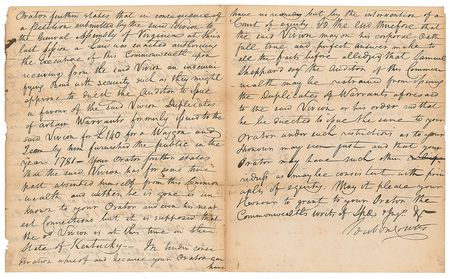 Orator further states that in consequence of
a Petition submitted by the said Vivion to
the General Assembly of Virginia at their
last session a Law was enacted authorizing
the Executive of this Commonwealth upon
receiving from the said Vivion an indemni-
fying Bond with security such as they might
approve to direct the Auditor to issue
in favour of the said Vivion Duplicates
of certain Warrants formerly issued to the
said Vivion for £140 for a Waggon and
Team by him furnished the public in the
year 1781 — Your Orator further states
that the said Vivion has for some time
past absented himself from this Common
wealth and whither he is gone is un-
known to your Orator and even his near-
est Connections but it is supposed that
the sd Vivion is at this time in the
State of Kentucky — In tender consi-
deration whereof and because your Orator can
have
have no remedy but by the intervention of a
Court of equity To the end therefore that
the said Vivion may on his corporal Oath
full true and perfect answer make to
all the facts before alledged that Samuel
Sheppard esqr the Auditor of this Common
wealth may be restrained from issuing
the Duplicates of Warrants aforesaid
to the said Vivion or his order and that
he be directed to issue the same to your
Orator under such restrictions as to your
honours may seem just and that your
Orator may have such other
relief as may be consistent with prin-
ciples of equity. May it please your
Honours to grant to your Orator the
Commonwealths writs of Spa &c